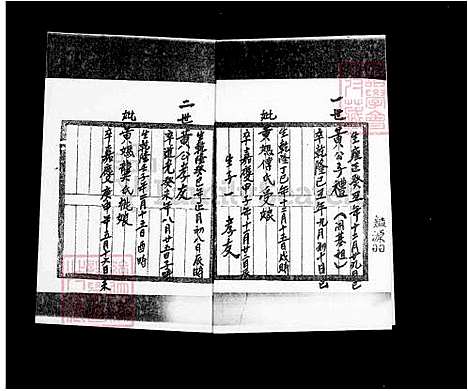 一世黃公子禮(開基祖)
生雍正癸丑年十二月廿九日巳
卒乾隆己丑年九月初十日巳
妣黃媽傅氏受娘
生乾隆丁巳年十二月十五日戌時
卒嘉慶甲子年十月廿二日辰
生子一 孝友
二世黃公孝友
生乾隆癸巳年正月初八日辰時
卒道光癸未年八月廿三日子時
妣黃媽龔氏桃娘
生乾隆壬子年二月十二日酉時
卒嘉慶庚申年五月六日未